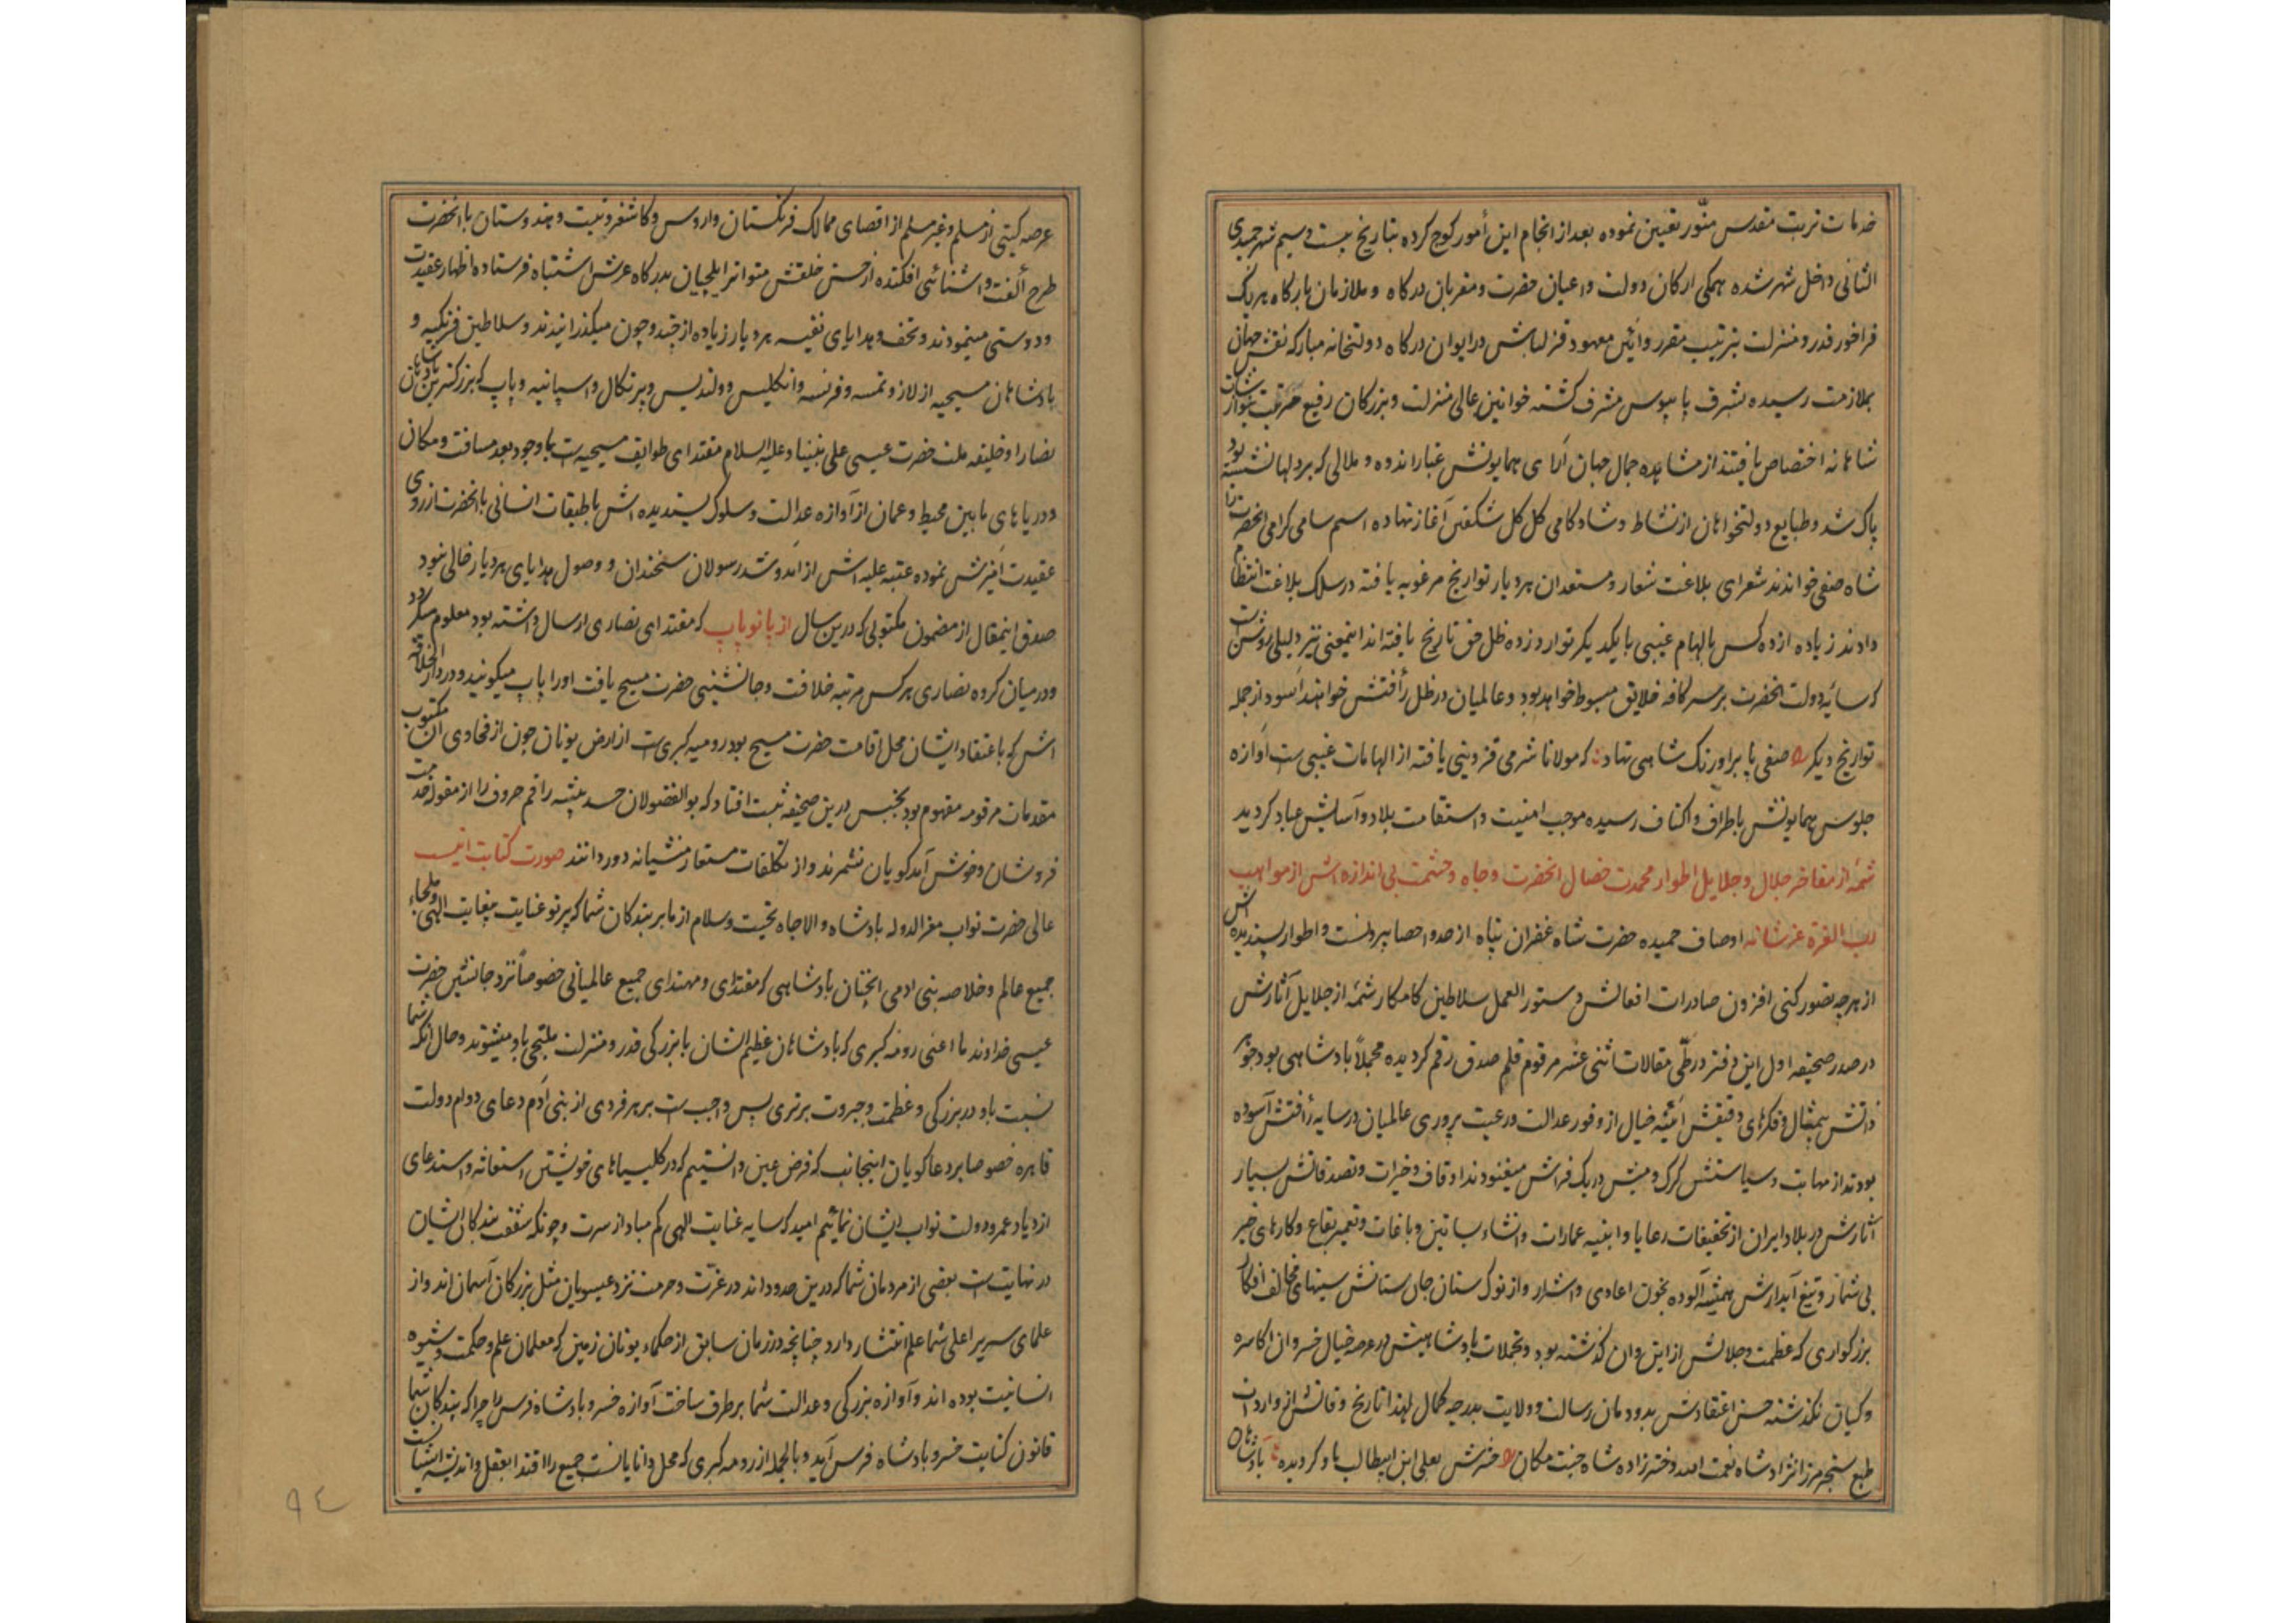 خدمات تربت مقدس منور تعیین نموده بعد از انجام این أمور کوچ کرده بتاریخ بیست و سیم شهر جمیدی
الثانی داخل شهر شده همکی ارکان دولت و اعیان حضرت و مقربان درکاه و ملازمان بارکاه هریک
فراخور قدر و منزلت بترتیب مقرر و آئین معهود قزلباش در ایوان درکاه دولتخانه مبارکه نقش جهان
بملازمت رسیده بشرف پایبوس مشرف کشته خوانین عالی منزلت و بزرکان رفیع مرتبت
شاهانه اختصاص یافتند از مشاهده جمال جهان آرای همایونش غبار اندوه و ملالی که بر دلها نشسته بود
پاک شد و طبایع دولتخواهان از نشاط و شادکامی کل کل شکفتن آغاز نهاده اسم سامی کرامی انحضرت را
شاه صفی خواندند شعرای بلاغت شعار و مستعدان هر دیار تواریخ مرغوبه یافته در سلک بلاغت انتظام
دادند زیاده از ده کس بالهام غیبی با یکدیکر توارد زده ظل حق تاریخ یافته اند اینمعنی نیز دلیلی روشن است
که سایه دولت انحضرت بر سر کافه خلایق مبسوط خواهد بود و عالمیان در ظل رأفتش خواهند آسود از جمله
تواریخ دیکر صفی پا بر اورنک شاهی نهاد که مولانا شرمی قزوینی یافته از الهامات غیبی ست آوازه
جلوس همایونش باطراف و اکناف رسیده موجب امنیت و استقامت بلاد و آسایش عباد کردید
شمه از مفاخر جلال و جلایل اطوار محمدت خصال انحضرت و جاه و حشمت بی اندازه اش از مواهب
رب العزة عز شانه اوصاف حمیده حضرت شاه غفران پناه از حد و احصا بیرونست و اطوار پسندیده اش
از هرچه تصور کنی افزون صادرات افعالش دستور العمل سلاطین کامکار شمه از جلایل آثارش
در صدر صحیفه اول این دفتر در طی مقالات اثنی عشر مرقوم قلم صدق رقم کردیده مجملاً پادشاهی بود جوهر
ذاتش بیمثال و فکرهای دقیقش آئینه خیال از وفور عدالت و رعیت پروری عالمیان در سایه رأفتش آسوده
بودند از مهابت و سیاستش کرک و میش در یک فراش میغنودند اوقاف و خیرات و تصدقاتش بسیار
آثارش در بلاد ایران از تخفیفات رعایا و ابنیه عمارات و انشاء بساتین و باغات و تعمیر بقاع و کارهای خیر
بی شمار و تیغ آبدارش همیشه آلوده بخون اعادی و اشرار و از نوک سنان جان ستانش سینهای مخالف افکار
بزرکواری که عظمت و جلالش از این و ان کذشته بود و تجملات پادشاهیش در عرصه خیال خسروان اکاسره
و کیان نکذشته حسن اعتقادش بدودمان رسالت و ولایت بدرجه کمال لهذا تاریخ وفاتش از واردات
طبع سنجر میرزا نژاد شاه نعمت الله دخترزاده شاه جنت مکان حشرش بعلی ابن ابیطالب باد کردیده پادشاهان
عرصه کیتی از مسلم و غیر مسلم از اقصای ممالک فرنکستان و اروس و کاشغر و تبت و هندوستان با انحضرت
طرح ألفت و اشنائی افکنده از حسن خلقش متواتر ایلچیان بدرکاه عرش اشتباه فرستاده اظهار عقیدت
و دوستی مینمودند و تحف و هدایای نفیسه هر دیار زیاده از چند و چون میکذرانیدند و سلاطین فرنکیه و
پادشاهان مسیحیه از لاز و نمسه و فرنسه و انکلیس و ولندیس و پرتکال و اسپانیه و پاپ که بزرکترین پادشاهان
نصارا و خلیفه ملت حضرت عیسی علی نبینا و علیه السلام مقتدای طوایف مسیحیه است با وجود بعد مسافت و مکان
و دریاهای مابین محیط و عمان از آوازه عدالت و سلوک پسندیده اش با طبقات انسانی با انحضرت از روی
عقیدت آمیزش نموده عتبه علیه اش از آمد و شد رسولان سخندان و وصول هدایای هر دیار خالی نبود
صدق اینمقال از مضمون مکتوبی که درین سال از پانو پاپ که مقتدای نصاری ارسال داشته بود معلوم میکردد
و در میان کروه نصاری هر کس مرتبه خلافت و جانشینی حضرت مسیح یافت او را پاپ میکویند و در دار الخلافه
اش که باعتقاد ایشان محل اقامت حضرت مسیح بود رومیه کبری ست از ارض یونان چون از فحاوی ان مکتوب
مقدمات مرقومه مفهوم بود بجنس درین صحیفه ثبت افتاد که بوالفضولان حسد پیشه راقم حروف را از مقوله خدمت
فروشان و خوش آمد کویان نشمرند و از تکلفات مستعار منشیانه دور دانند صورت کتابت اینست
عالی حضرت نواب معز الدوله پادشاه والاجاه تحیت و سلام از ما بر بندکان شما که پرتو عنایت بیغایت الهی و ملجاء
جمیع عالم و خلاصه بنی ادمی انچنان پادشاهی که مقتدای و مهتدای جمیع عالمیانی خصوصاً نزد جانشین حضرت
عیسی خداوند ما اعنی رومه کبری که پادشاهان عظیم الشان با بزرکی قدر و منزلت ملتجی باو میشوند و حال انکه شما
نسبت باو در بزرکی و عظمت و جبروت برتری پس واجب ست بر هر فردی از بنی آدم دعای دوام دولت
قاهره خصوصا بر دعاکویان اینجانب که فرض عین دانستیم که در کلیسیاهای خویشتن استغاثه و استدعای
ازدیاد عمر و دولت نواب ایشان نمائیم امید که سایه عنایت الهی کم مباد از سرت و چونکه شفقت بندکان ایشان
در نهایت ست بعضی از مردمان شما که درین حدود اند در عزت و حرمت نزد عیسویان مثل بزرکان آسمان اند و از
علمای سریر اعلی شما علم انتشار دارد چنانچه در زمان سابق از حکماء یونان زمین که معلمان علم و حکمت و شیوه
انسانیت بوده اند و آوازه بزرکی و عدالت شما بر طرف ساخت آوازه خسرو پادشاه فرس را چرا که بندکان شما
قانون کتابت خسرو پادشاه فرس آید و بالجمله از رومه کبری که محل دانایانست جمیع را اقتدا بعقل و اندیشه
٩٤